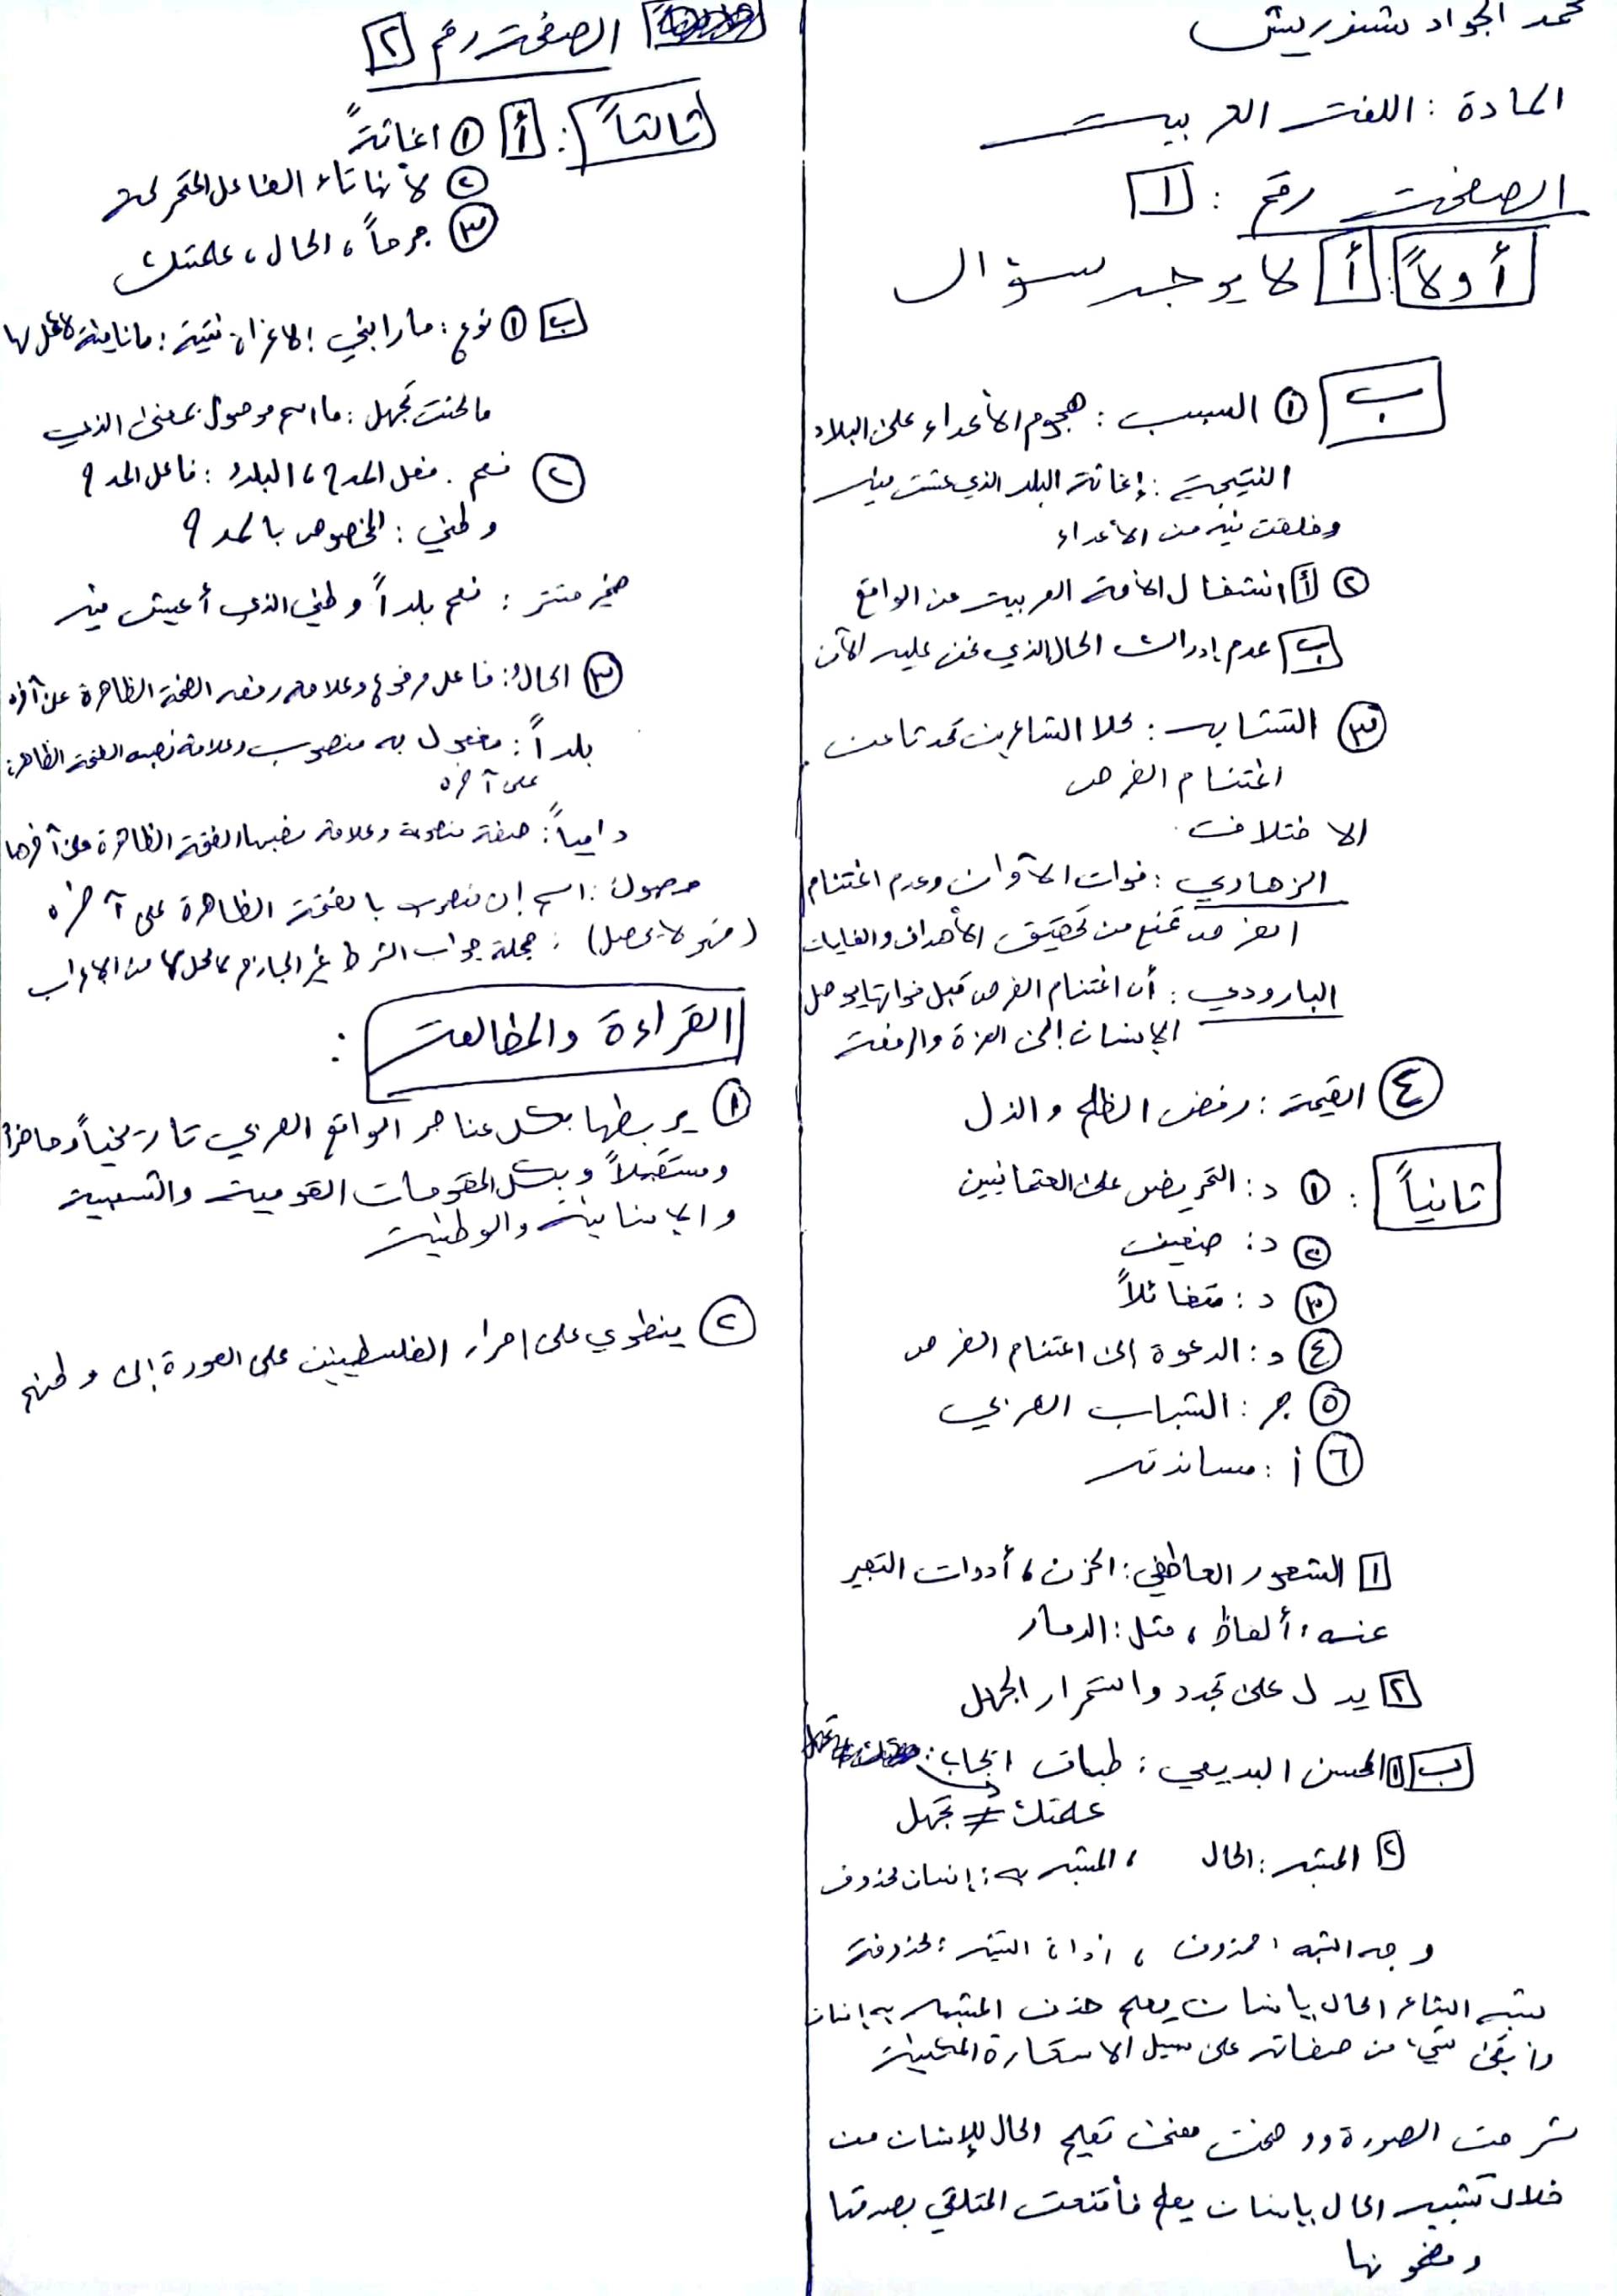 محمد الجواد شنوريش
المادة : اللغة العربية
الصفحة رقم : 1
أولاً : أ لا يوجد سؤال
ب ١ السبب : هجوم الأعداء على البلاد
النتيجة : إغاثة البلد الذي عشت فيه
وخلقت فيه من الأعداء
٢ أ انشغال الأمة العربية عن الواقع
ب عدم إدراك الحال الذي نحن عليه الآن
٣ التشابه : كلا الشاعرين تحدثا عن
اغتنام الفرص
الاختلاف
الزهاوي : فوات الأوان وعدم اغتنام
الفرص تمنع من تحقيق الأهداف والغايات
البارودي : أن اغتنام الفرص قبل فواتها يوصل
الإنسان إلى العزة والرفعة
٤ القيمة : رفض الظلم والذل
ثانياً : ١ د : التحريض على العثمانيين
٢ د : ضعيف
٣ د : متفائلاً
٤ د : الدعوة إلى اغتنام الفرص
٥ ج : الشباب العربي
٦ أ : مساندته
١ الشعور العاطفي : الحزن ، أدوات التعبير
عنه : ألفاظ ، مثل : الدمار
٢ يدل على تجدد واستمرار الجهل
ب ١ المحسن البديعي : طباق ايجاب :
علمتك ≠ تجهل
٢ المشبه : الحال ، المشبه به : إنسان محذوف
وجه الشبه : محذوف ، أداة التشبيه : محذوفة
شبه الشاعر الحال بإنسان يعلم حذف المشبه به إنسان
وأبقى شيء من صفاته على سبيل الاستعارة المكنية
شرحت الصورة ووضحت معنى تعليم الحال للإنسان من
خلال تشبيه الحال بإنسان يعلم فأقنعت المتلقي بصدقها
ومضمونها
الصفحة رقم ٢
ثالثاً : أ ١ اغاثةً
٢ لأنها تاء الفاعل المتحركة
٣ جرحاً ، الحال ، علمتك
ب ١ نوع : ما رابني : ما نافية لا عمل لها
ما كنت تجهل : ما اسم موصول بمعنى الذي
٢ نعم : فعل المدح ، البلدُ : فاعل المدح
وطني : المخصوص بالمدح
ضمير مستتر : نعم بلداً وطني الذي أعيش فيه
٣ الحالُ : فاعل مرفوع وعلامة رفعه الضمة الظاهرة على آخره
بلداً : مفعول به منصوب وعلامة نصبه الفتحة الظاهرة
على آخره
دامياً : صفة منصوبة وعلامة نصبها الفتحة الظاهرة على آخرها
حصول : اسم إن منصوب بالفتحة الظاهرة على آخره
(فهو لا يحصل) : جملة جواب الشرط غير الجازم لا محل لها من الإعراب
القراءة والمطالعة :
١ يربطها بكل عناصر الواقع العربي تاريخياً وحاضراً
ومستقبلاً وبكل المقومات القومية والشعبية
والإنسانية والوطنية
٢ ينطوي على اصرار الفلسطينيين على العودة إلى وطنهم